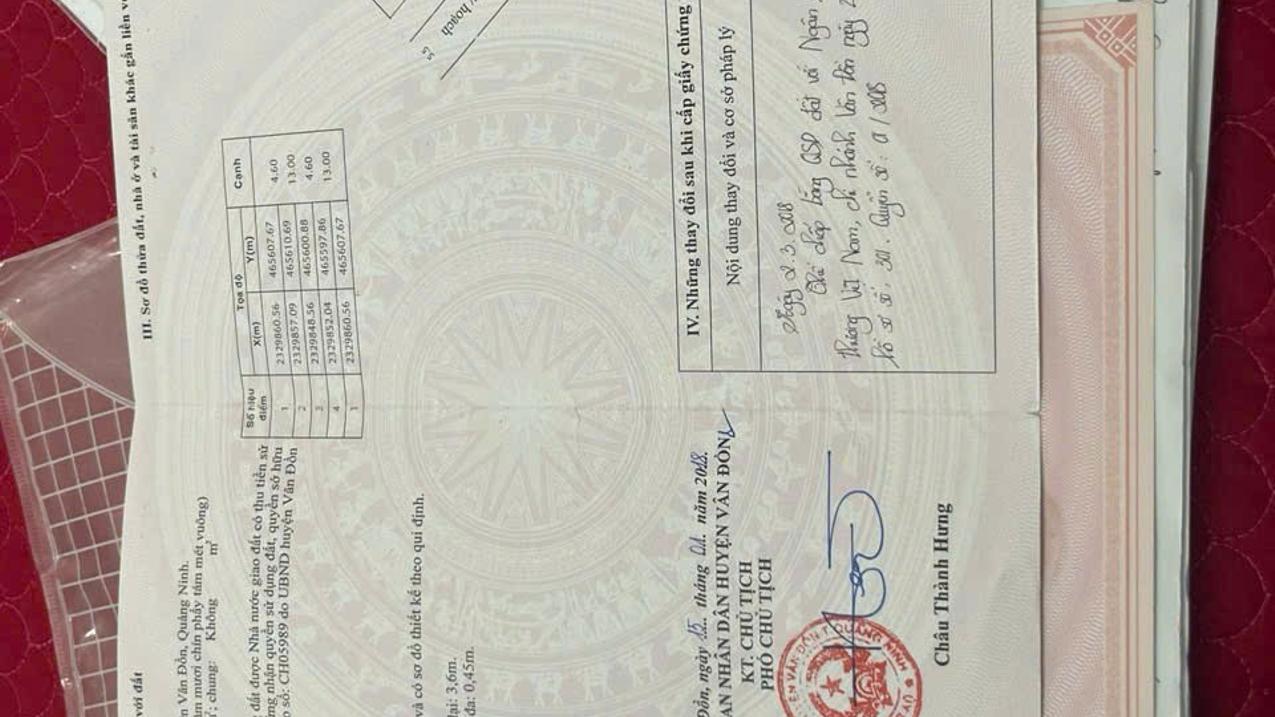 với đất
n Vân Đồn, Quảng Ninh.
m mươi chín phẩy tám mét vuông)
²; chung: Không m²
g đất được Nhà nước giao đất có thu tiền sử
ng nhận quyền sử dụng đất, quyền sở hữu
o số: CH05989 do UBND huyện Vân Đồn
và có sơ đồ thiết kế theo qui định.
lại: 3,6m.
đa: 0,45m.
Đồn, ngày 15 tháng 01 năm 2018.
AN NHÂN DÂN HUYỆN VÂN ĐỒN
KT. CHỦ TỊCH
PHÓ CHỦ TỊCH
Châu Thành Hưng
III. Sơ đồ thửa đất, nhà ở và tài sản khác gắn liền v
Số hiệu điểm Tọa độ Cạnh
X(m) Y(m)
1 2329860.56 465607.67 4.60
2 2329857.09 465610.69 13.00
3 2329848.56 465600.88 4.60
4 2329852.04 465597.86 13.00
1 2329860.56 465607.67
hoạch
IV. Những thay đổi sau khi cấp giấy chứng
Nội dung thay đổi và cơ sở pháp lý
Ngày 2.3.2018
Thế chấp bằng QSD đất với Ngân
thương Việt Nam, chi nhánh Vân Đồn ngày 2
hồ sơ số: 301. Quyển số: 01/2018